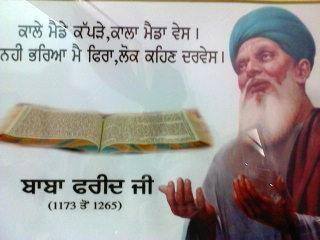 ਕਾਲੇ ਮੈਡੇ ਕੱਪੜੇ,ਕਾਲਾ ਮੈਡਾ ਵੇਸ ।
ਨਹੀ ਭਰਿਆ ਮੈ ਫਿਰਾ,ਲੋਕ ਕਹਿਣ ਦਰਵੇਸ ।
ਬਾਬਾ ਫਰੀਦ ਜੀ
(1173 ਤੋਂ 1265)